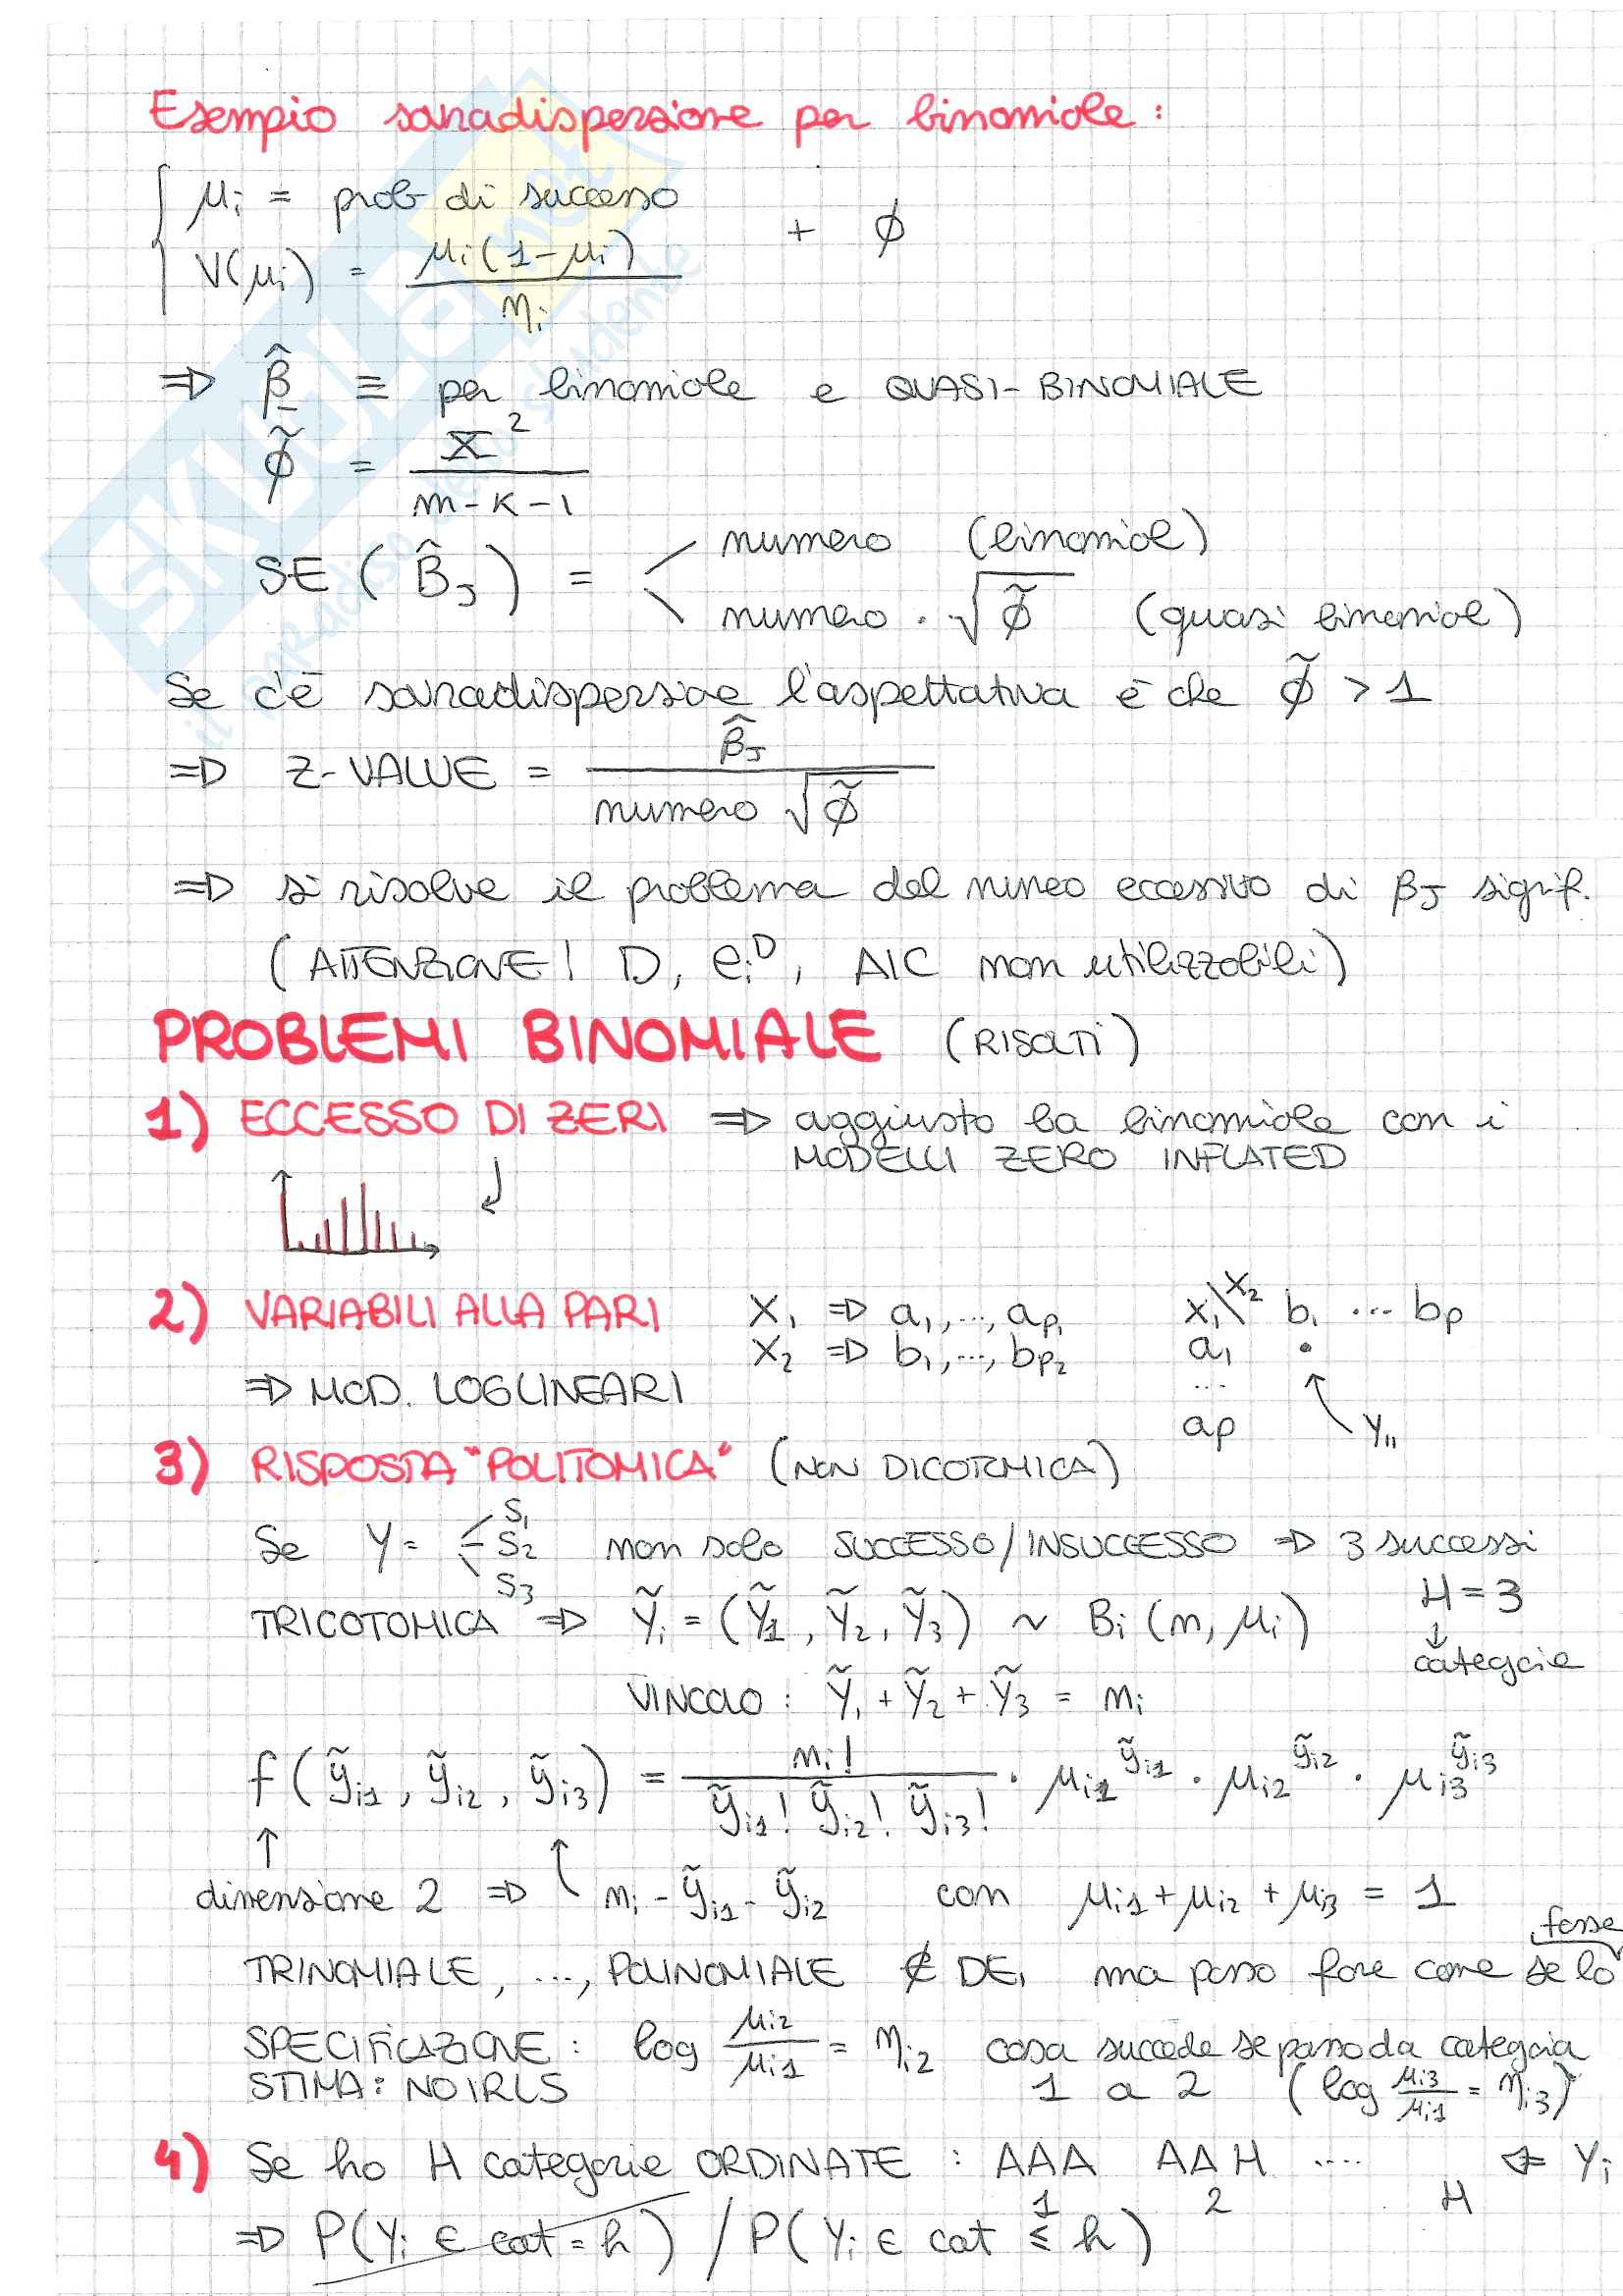 Esempio sovradispersione per binomiale :
μi = prob di successo
V(μi) = μi(1-μi) / ni + φ
=> β̂ ≡ per binomiale e QUASI-BINOMIALE
φ̃ = X² / n-k-1
SE ( β̂J ) = numero (binomial)
numero · √φ̃ (quasi binomial)
Se c'è sovradispersioe l'aspettativa è che φ̃ > 1
=> Z-VALUE = β̂J / numero √φ̃
=> si risolve il problema del numeo eccessivo di βJ signif.
(ATTENZIONE! D, eiᴰ, AIC non utilizzabili)
PROBLEMI BINOMIALE (RISOLTI)
1) ECCESSO DI ZERI => aggiusto la binomiale con i
MODELLI ZERO INFLATED
2) VARIABILI ALLA PARI X1 => a1,...,ap1 X1\X2 b1 ... bp
X2 => b1,...,bp2 a1 •
=> MOD. LOGLINEARI ...
ap Y11
3) RISPOSTA "POLITOMICA" (NON DICOTOMICA)
Se Y = S1 S2 S3 non solo SUCCESSO/INSUCCESSO => 3 successi
TRICOTOMICA => Ỹi = (Ỹ1, Ỹ2, Ỹ3) ~ Bi (n, μi) H = 3
↓ categorie
VINCOLO : Ỹ1 + Ỹ2 + Ỹ3 = ni
f(ỹi1, ỹi2, ỹi3) = ni! / ỹi1! ỹi2! ỹi3! · μi1^ỹi1 · μi2^ỹi2 · μi3^ỹi3
dimensione 2 => ni - ỹi1 - ỹi2 con μi1 + μi2 + μi3 = 1
TRINOMIALE, ..., POLINOMIALE ∉ DE1 ma posso fare come se lo fosse
SPECIFICAZIONE : log μi2/μi1 = ηi2 cosa succede se passo da categoria
STIMA: NO IRLS 1 a 2 (log μi3/μi1 = ηi3)
4) Se ho H categorie ORDINATE : AAA AAH .... <= Yi
1 2 H
=> P(Yi ∈ cat = h) / P(Yi ∈ cat ≤ h)